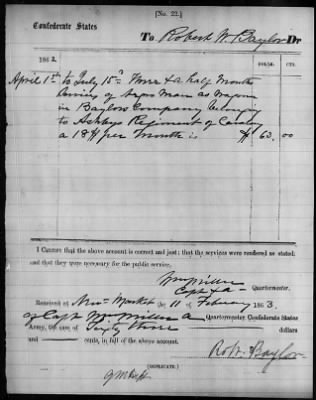 [No. 22.]
Confederate States
To Robert W. Baylor Dr
186 2.
DOLLS. CTS.
April 1st to July 15th Three & a half Months
hire of Negro Man as
in Baylors Company belonging
to Ashbys Regiment of Cavalry
a 18$ per Month is $ 63.00
I CERTIFY that the above account is correct and just; that the services were rendered as stated;
and that they were necessary for the public service.
Wm Miller
Capt & A Quartermaster.
RECEIVED at New Market the 11 of February 186 3.
of Capt Wm Miller A Quartermaster Confederate States
Army, the sum of Sixty three dollars
and cents, in full of the above account.
Ro W. Baylor
(DUPLICATE.)